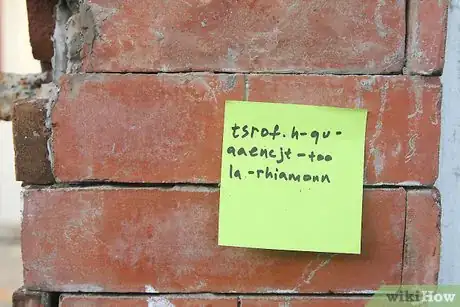 tsrof.h-qu-
aaencjt-too
la-rhiamonn
wikiHow